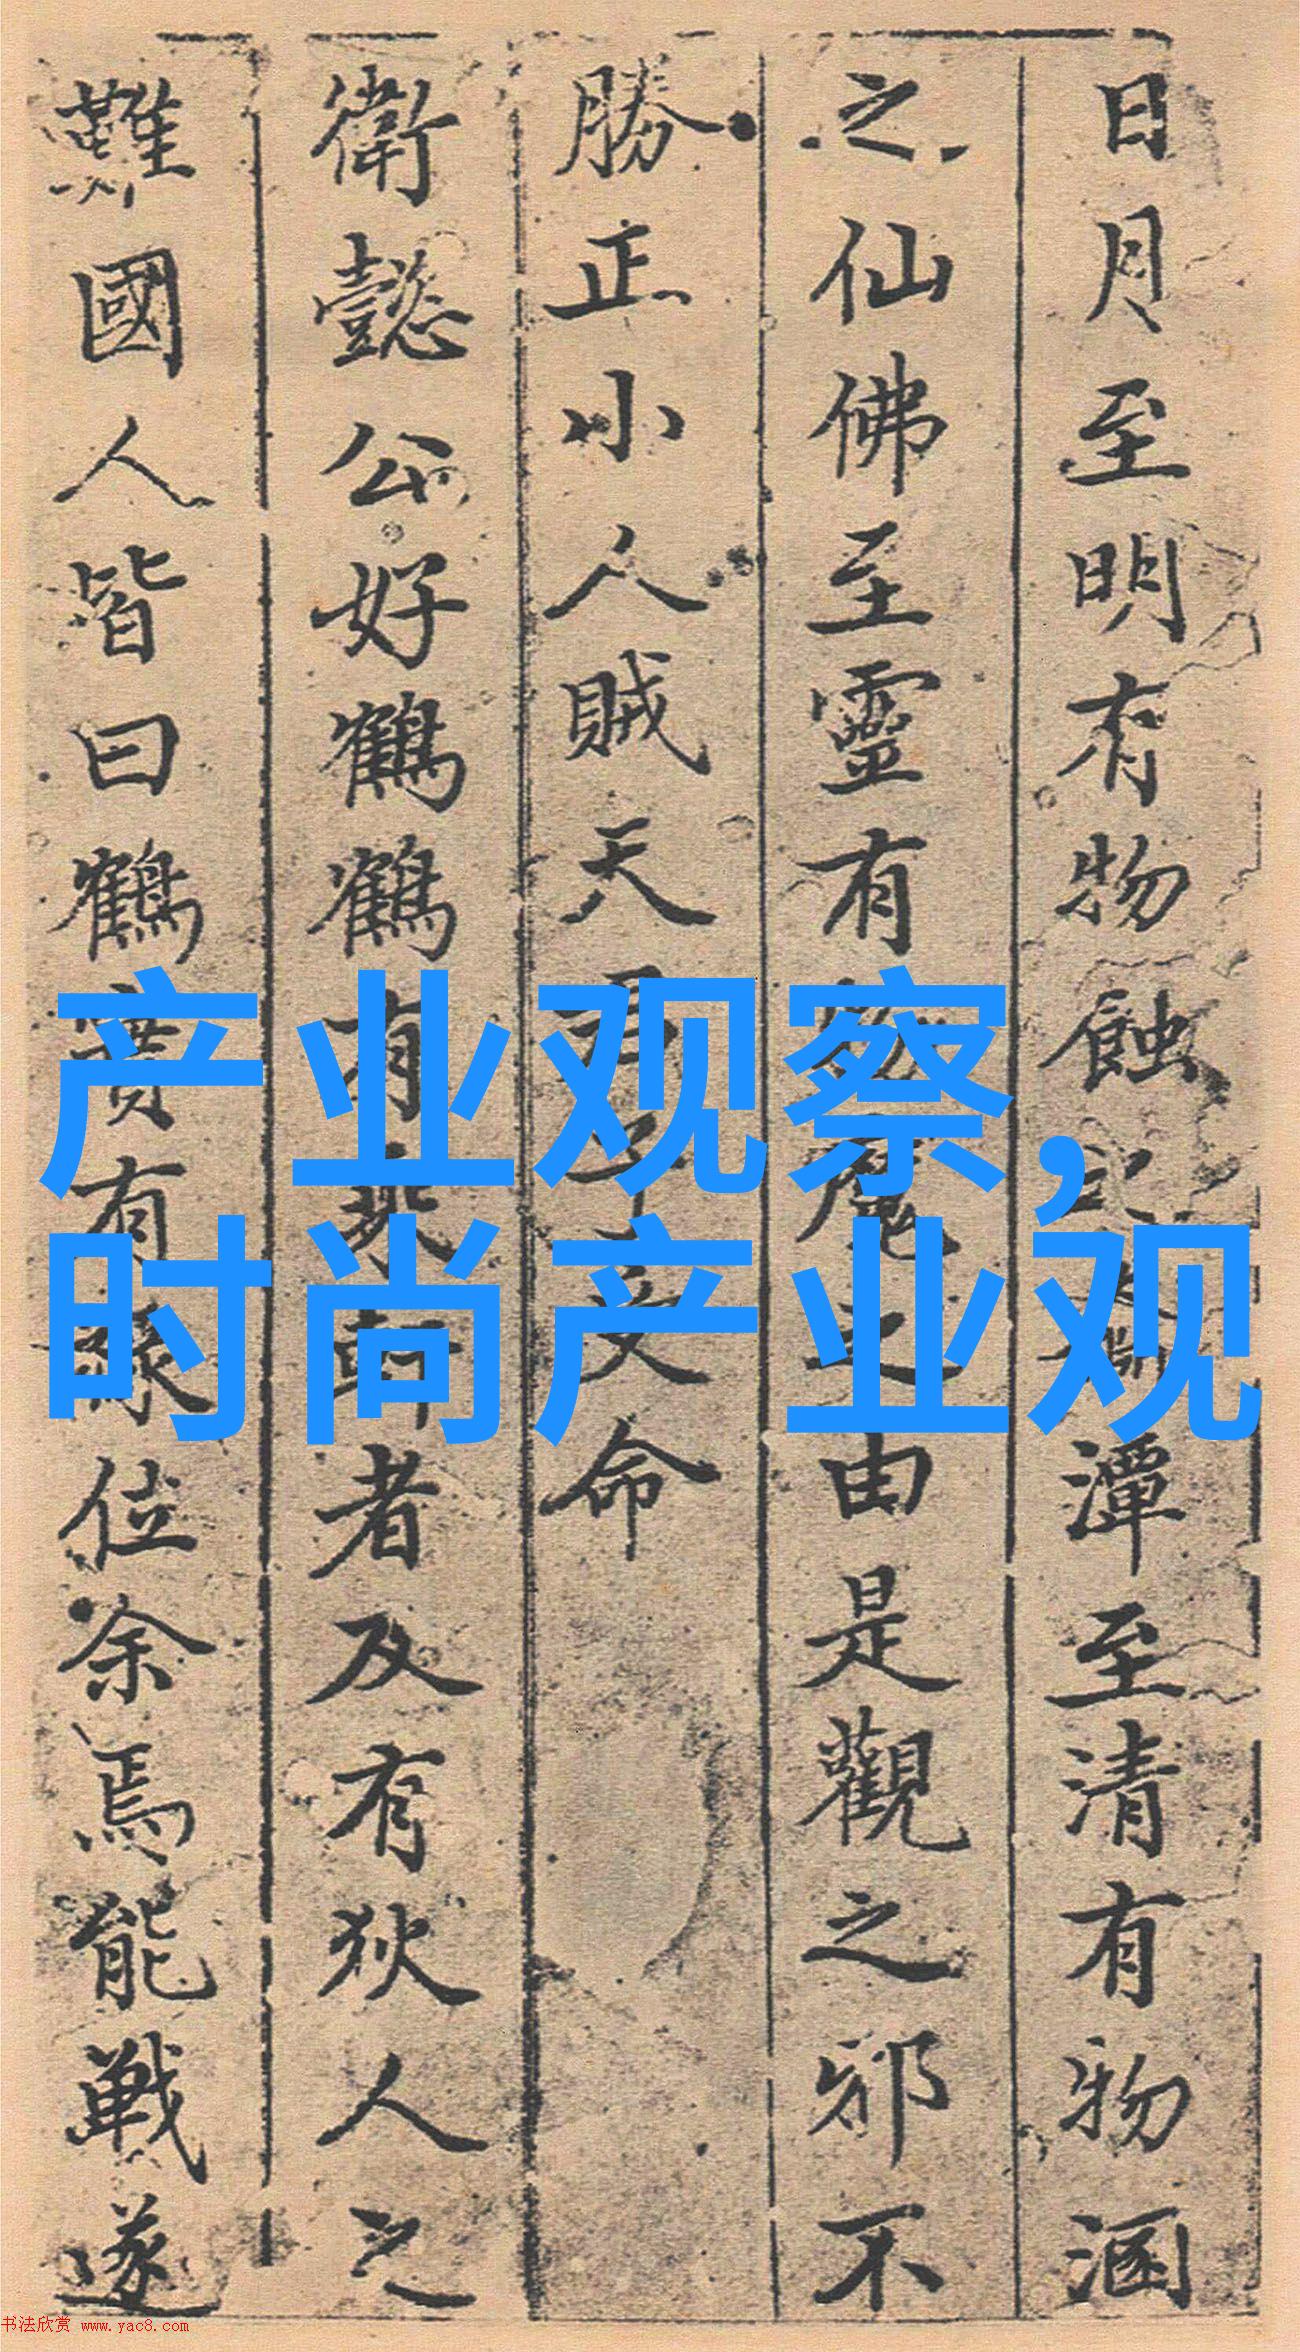 日月至明有物蝕之淵潭至清有物涵
之仙佛至靈有物魔之由是觀之邪不
勝正小人賊天君子命
衛懿公好鶴鶴有乘軒者及有狄人之
難國人皆曰鶴實有祿位余焉能戰遂
产业观察,
时尚产业观
书法欣赏 www.yac8.com